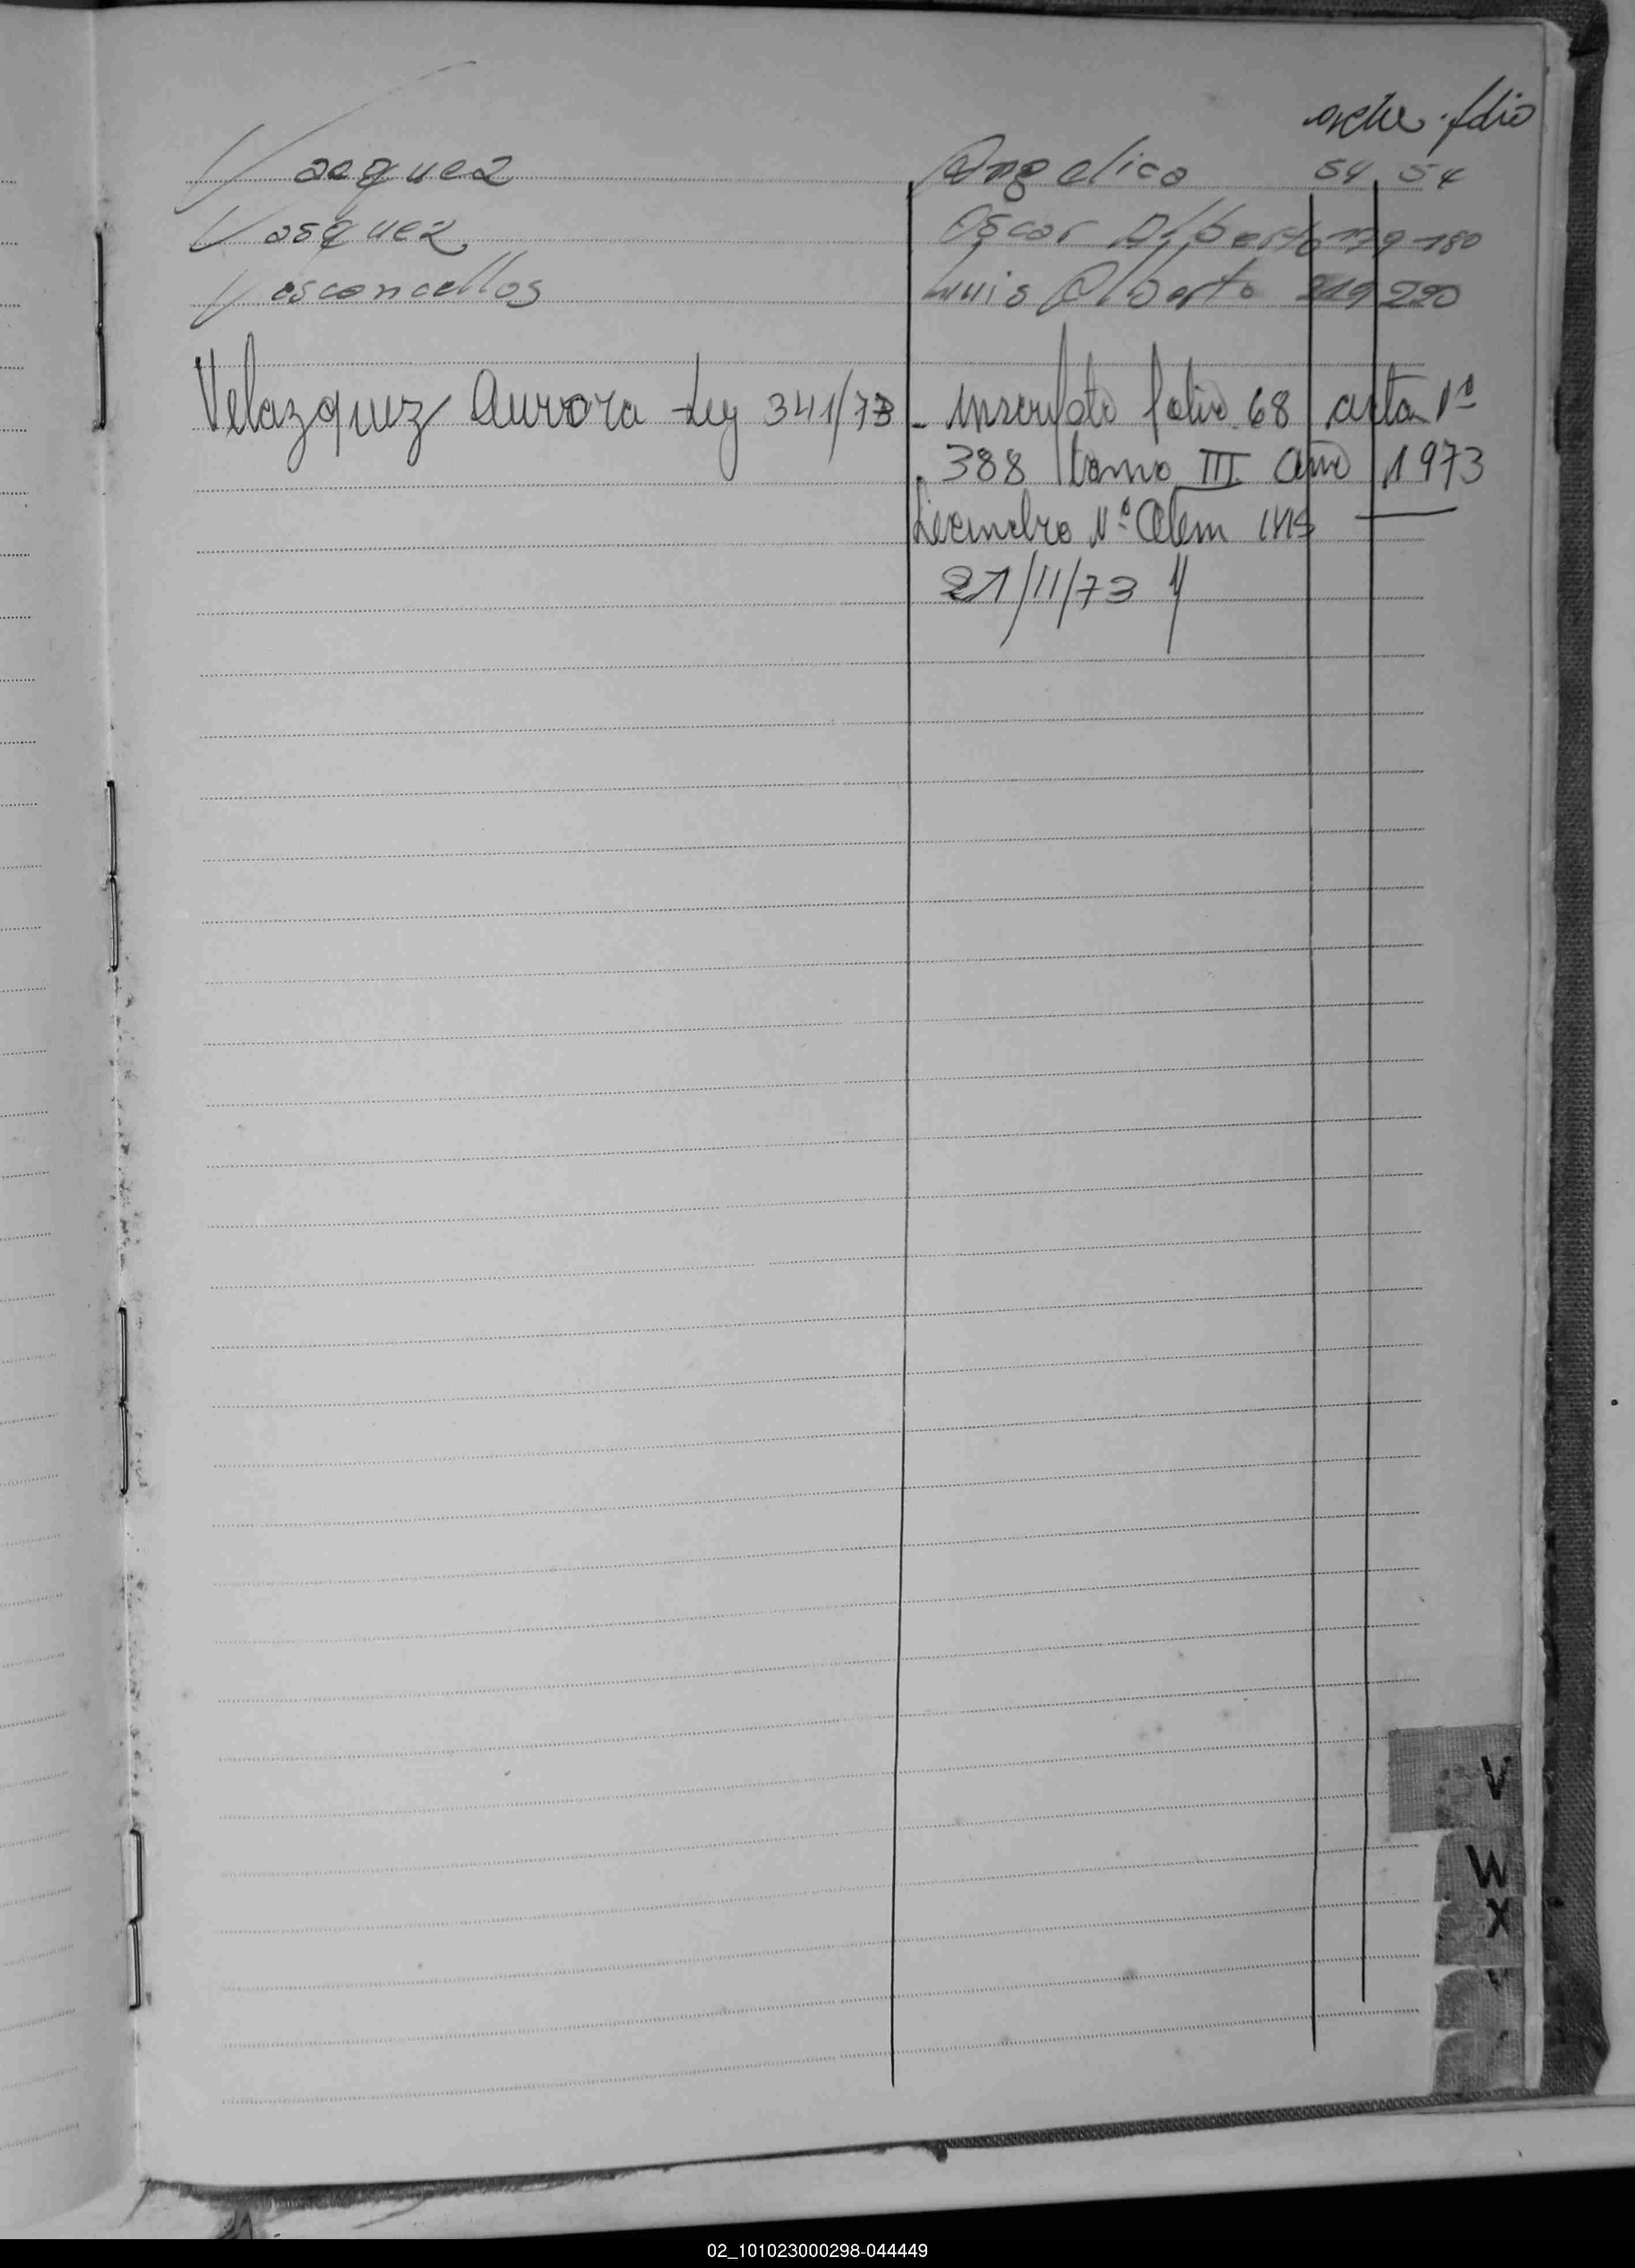 acta folio
Vasquez Angelica 54 54
Vasquez Oscar Alberto 179 180
Vasconcellos Luis Alberto 219 220
Velazquez Aurora Ley 341/73 - inscripto folio 68 acta Nº
388 tomo III año 1973
Leandro Nº Alem
21/11/73
V
W
X
02_101023000298-044449